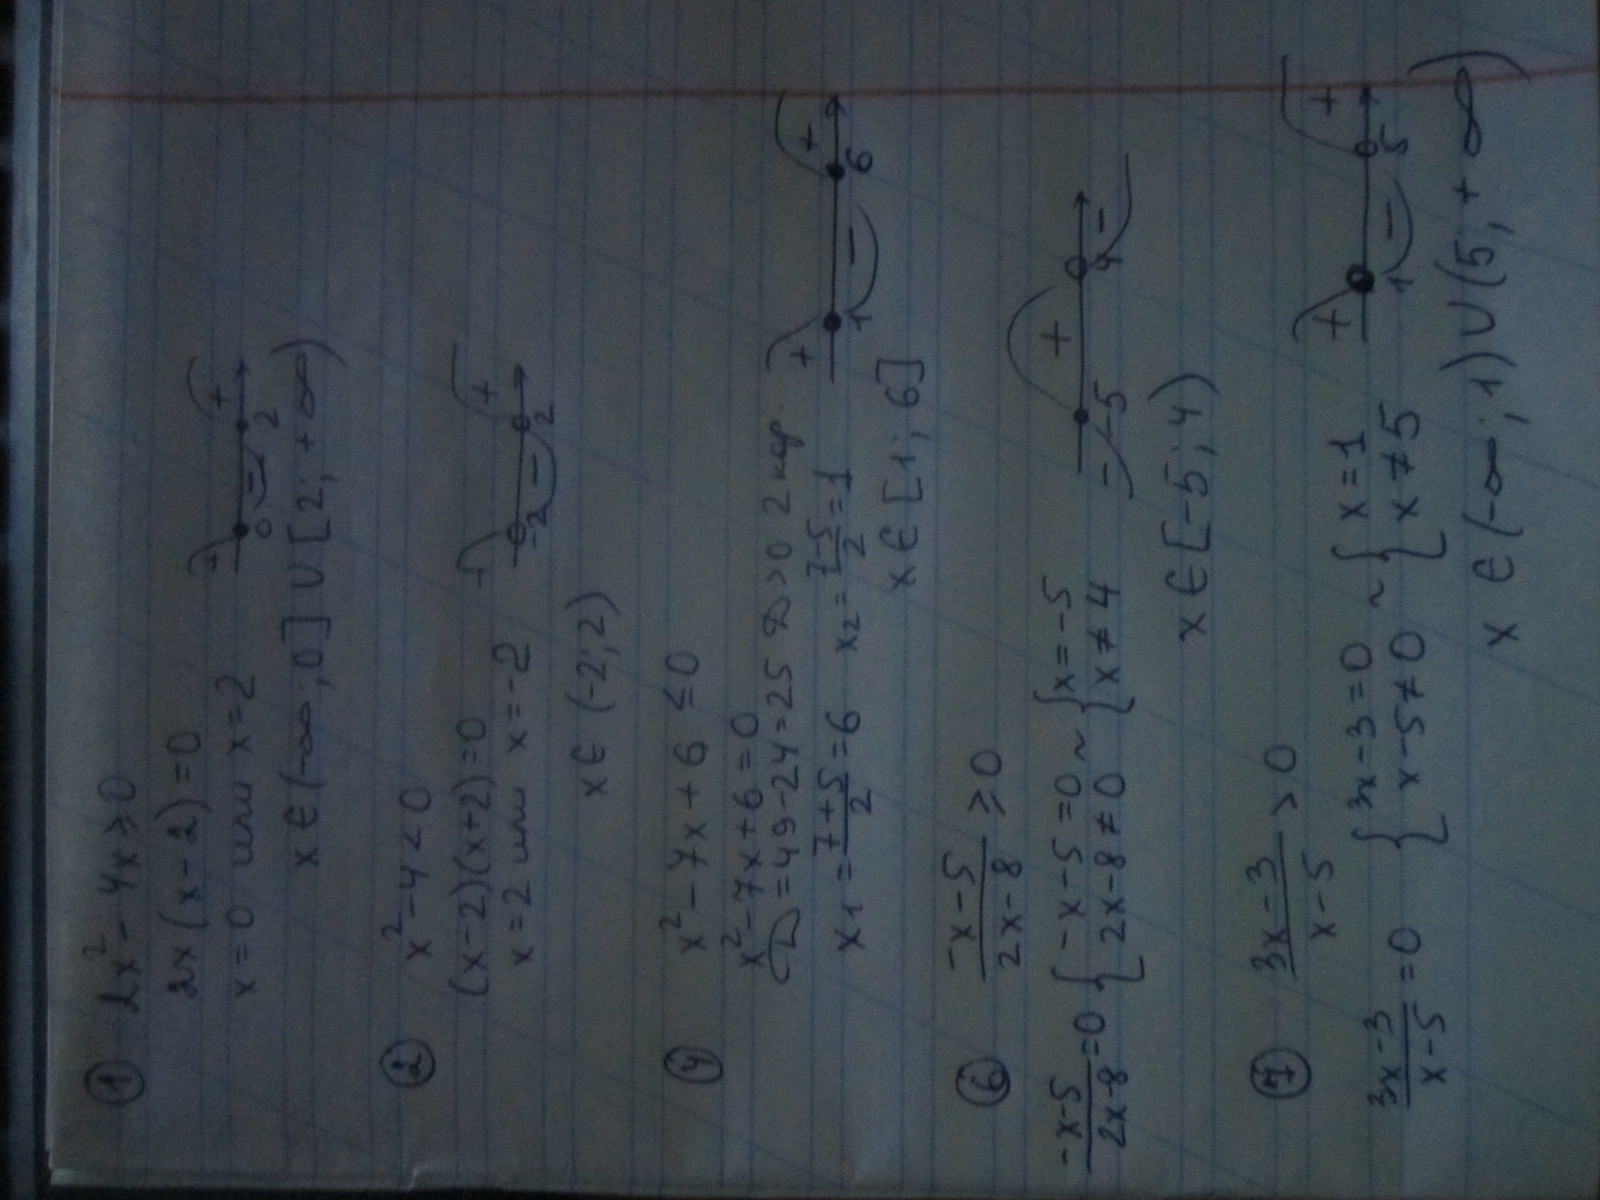 ① 2x² - 4x ≥ 0
2x(x-2)=0
x=0 или x=2
+ − + 0 2
x ∈ (-∞; 0] ∪ [2; +∞)
② x² - 4 < 0
(x-2)(x+2)=0
x=2 или x=-2
+ − + -2 2
x ∈ (-2; 2)
④ x² - 7x + 6 ≤ 0
x² - 7x + 6 = 0
D = 49 - 24 = 25 D > 0 2 кор.
x₁ = (7+5)/2 = 6 x₂ = (7-5)/2 = 1
+ − + 1 6
x ∈ [1; 6]
⑥ (-x-5)/(2x-8) ≥ 0
(-x-5)/(2x-8) = 0 { -x-5=0 2x-8≠0 ~ { x=-5 x≠4
− + − -5 4
x ∈ [-5; 4)
⑦ (3x-3)/(x-5) > 0
(3x-3)/(x-5) = 0 { 3x-3=0 x-5≠0 ~ { x=1 x≠5
+ − + 1 5
x ∈ (-∞; 1) ∪ (5; +∞)